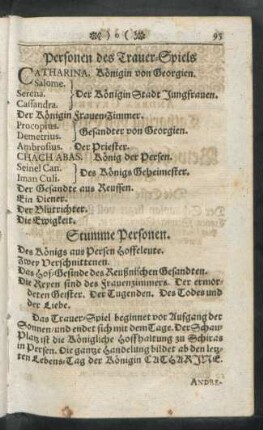 ) 6 ( 95
Personen des Trauer-Spiels
CATHARINA. Königin von Georgien.
Salome.
Serena. } Der Königin Staat Jungfrauen.
Cassandra.
Der Königin Frauen-Zimmer.
Procopius.
Demetrius. } Gesandter von Georgien.
Ambrosius. Der Priester.
CHACH ABAS. König der Persen.
Seinel Can.
Iman Culi. } Des Königs Geheimester.
Der Gesandte aus Reussen.
Ein Diener.
Der Blutrichter.
Die Ewigkeit.
Stumme Personen.
Des Königs aus Persen Hoffeleute.
Zwey Verschnittenen.
Das Hof-Gesinde des Reußnischen Gesandten.
Die Reyen sind des Frauenzimmers. Der ermor-
deten Geister. Der Tugenden. Des Todes und
der Liebe.
Das Trauer-Spiel beginnet vor Aufgang der
Sonnen/und endet sich mit dem Tage. Der Schau
Platz ist die Königliche Hoffhaltung zu Schiras
in Persen. Die gantze Handelung bildet ab den letz-
ten Lebens-Tag der Königin CATHARINE.
ANDRE-